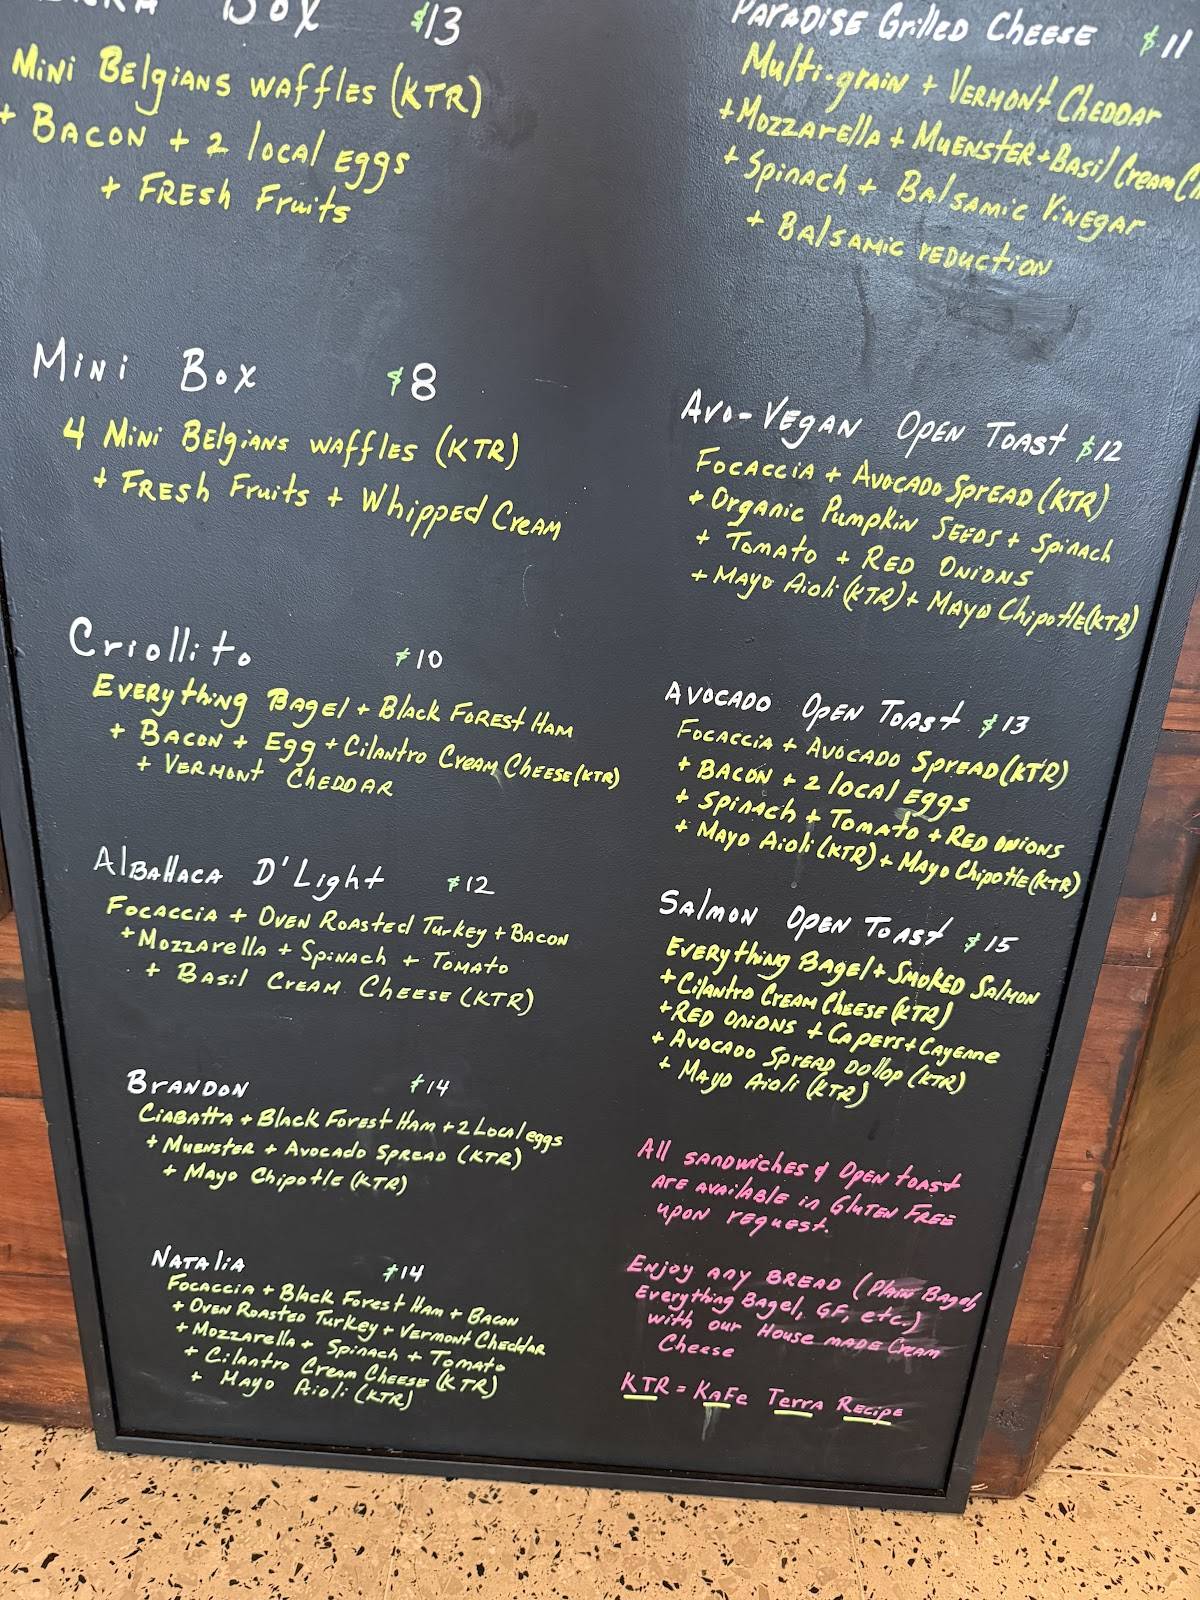 Box $13
Mini Belgians waffles (KTR)
+ Bacon + 2 local eggs
+ Fresh Fruits
Mini Box $8
4 Mini Belgians waffles (KTR)
+ Fresh Fruits + Whipped Cream
Criollito $10
Everything Bagel + Black Forest Ham
+ Bacon + Egg + Cilantro Cream Cheese (KTR)
+ Vermont Cheddar
Albahaca D'Light $12
Focaccia + Oven Roasted Turkey + Bacon
+ Mozzarella + Spinach + Tomato
+ Basil Cream Cheese (KTR)
Brandon $14
Ciabatta + Black Forest Ham + 2 Local eggs
+ Muenster + Avocado Spread (KTR)
+ Mayo Chipotle (KTR)
Natalia $14
Focaccia + Black Forest Ham + Bacon
+ Oven Roasted Turkey + Vermont Cheddar
+ Mozzarella + Spinach + Tomato
+ Cilantro Cream Cheese (KTR)
+ Mayo Aioli (KTR)
Paradise Grilled Cheese $11
Multi-grain + Vermont Cheddar
+ Mozzarella + Muenster + Basil Cream
+ Spinach + Balsamic Vinegar
+ Balsamic reduction
Avo-Vegan Open Toast $12
Focaccia + Avocado Spread (KTR)
+ Organic Pumpkin Seeds + Spinach
+ Tomato + Red Onions
+ Mayo Aioli (KTR) + Mayo Chipotle (KTR)
Avocado Open Toast $13
Focaccia + Avocado Spread (KTR)
+ Bacon + 2 local eggs
+ Spinach + Tomato + Red onions
+ Mayo Aioli (KTR) + Mayo Chipotle (KTR)
Salmon Open Toast $15
Everything Bagel + Smoked Salmon
+ Cilantro Cream Cheese (KTR)
+ Red Onions + Capers + Cayenne
+ Avocado Spread Dollop (KTR)
+ Mayo Aioli (KTR)
All sandwiches & Open toast
are available in Gluten Free
upon request.
Enjoy any BREAD (Plain Bagel,
Everything Bagel, GF, etc.)
with our House made Cream
Cheese
KTR = Kafe Terra Recipe